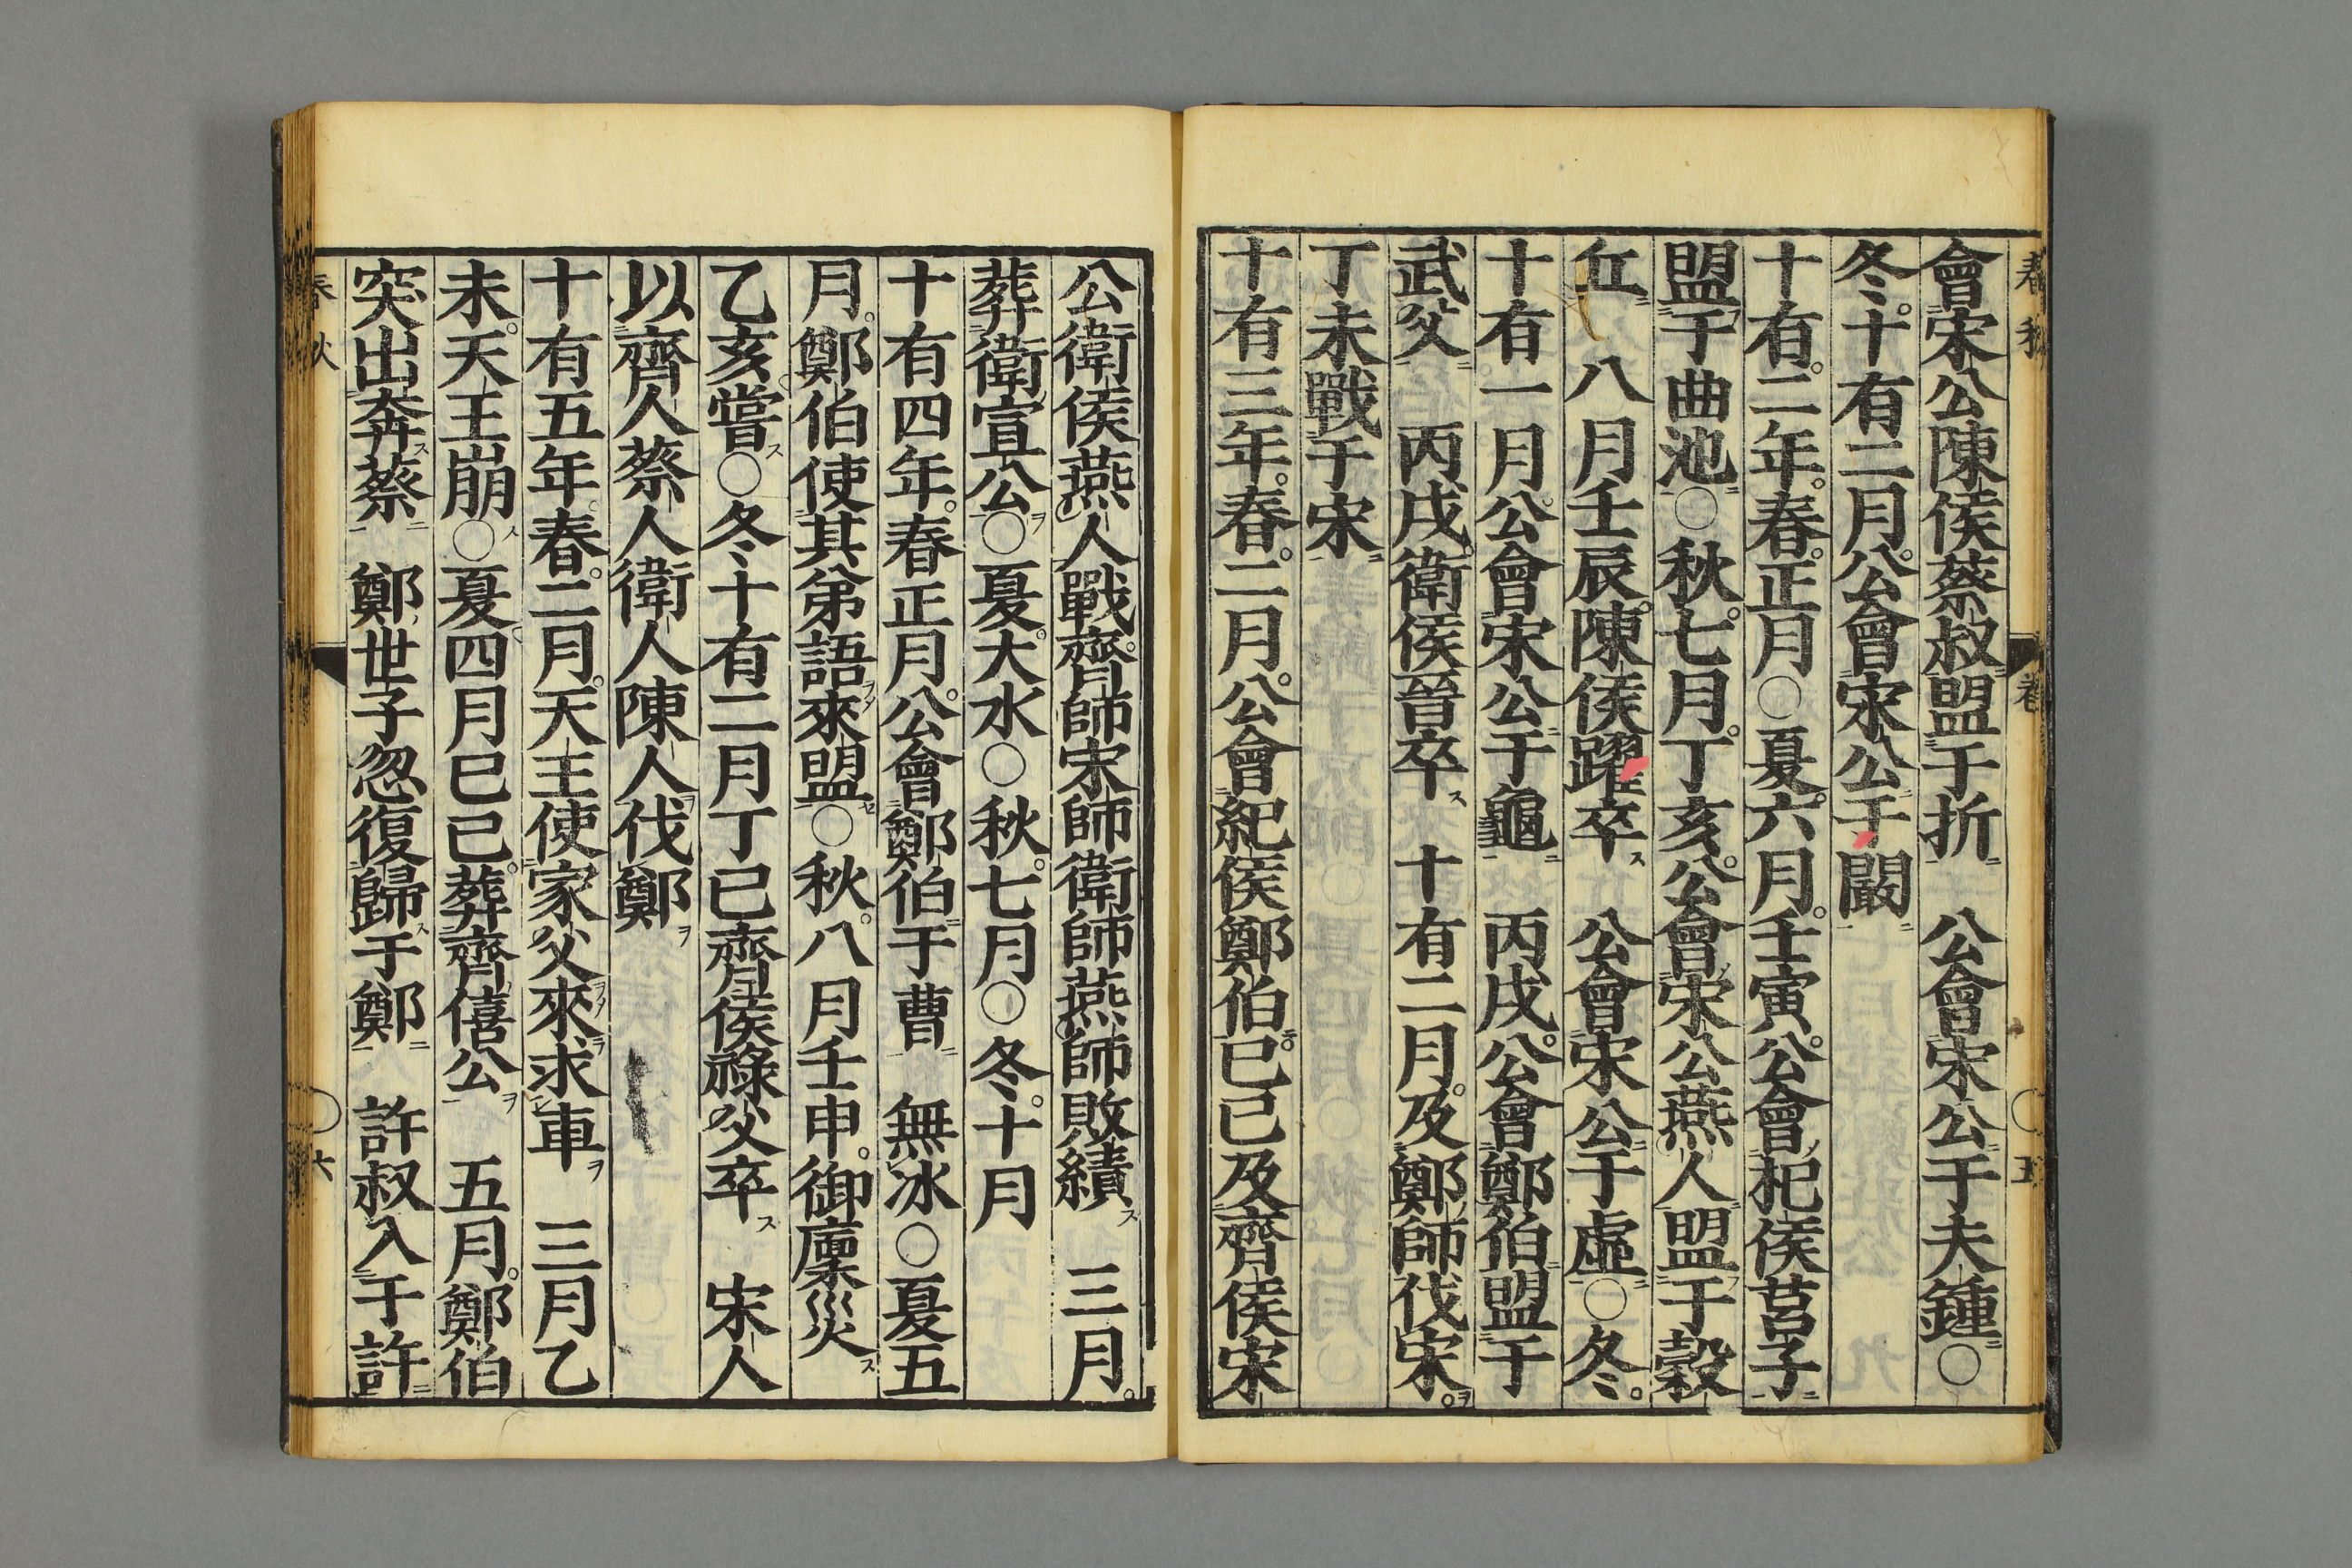 春秋 卷 ○ 五
會宋公陳侯蔡叔盟于折 公會宋公于夫鍾○
冬十有二月公會宋公于闞
十有二年春正月○夏六月壬寅公會杞侯莒子
盟于曲池○秋七月丁亥公會宋公燕人盟于穀
丘 八月壬辰陳侯躍卒 公會宋公于虛○冬
十有一月公會宋公于龜 丙戌公會鄭伯盟于
武父 丙戌衛侯晉卒 十有二月及鄭師伐宋
丁未戰于宋
十有三年春二月公會紀侯鄭伯巳已及齊侯宋
公衛侯燕人戰齊師宋師衛師燕師敗績 三月
葬衛宣公○夏大水○秋七月○冬十月
十有四年春正月公會鄭伯于曹 無冰○夏五
月鄭伯使其弟語來盟○秋八月壬申御廩災
乙亥嘗○冬十有二月丁巳齊侯祿父卒 宋人
以齊人蔡人衛人陳人伐鄭
十有五年春二月天王使家父來求車 三月乙
未天王崩○夏四月巳己葬齊僖公 五月鄭伯
突出奔蔡 鄭世子忽復歸于鄭 許叔入于許
春秋 ○ 六